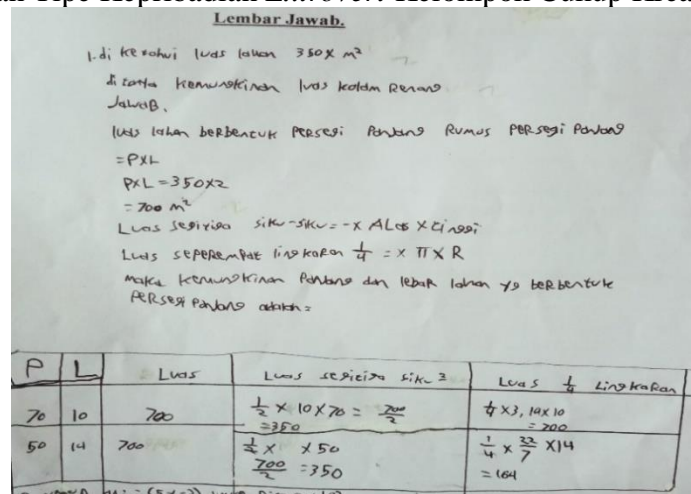 Lembar Jawab.
1. di ketahui luas lahan 350 x m²
di tanya kemungkinan luas kolam Renang
Jawab.
luas lahan berbentuk Persegi Panjang Rumus Persegi Panjang
= P x L
P x L = 350 x 2
= 700 m²
Luas segitiga siku-siku = - x ALas x tinggi
Luas seperempat lingkaran 1/4 = x π x R
maka kemungkinan Panjang dan lebar lahan yg berbentuk
Persegi Panjang adalah =
P L Luas Luas segitiga siku 2 Luas 1/4 Lingkaran
70 10 700 1/2 x 10 x 70 = 700/2 = 350 1/4 x 3,14 x 10 = 700
50 14 700 1/2 x x 50 700/2 = 350 1/4 x 22/7 x 14 = 164